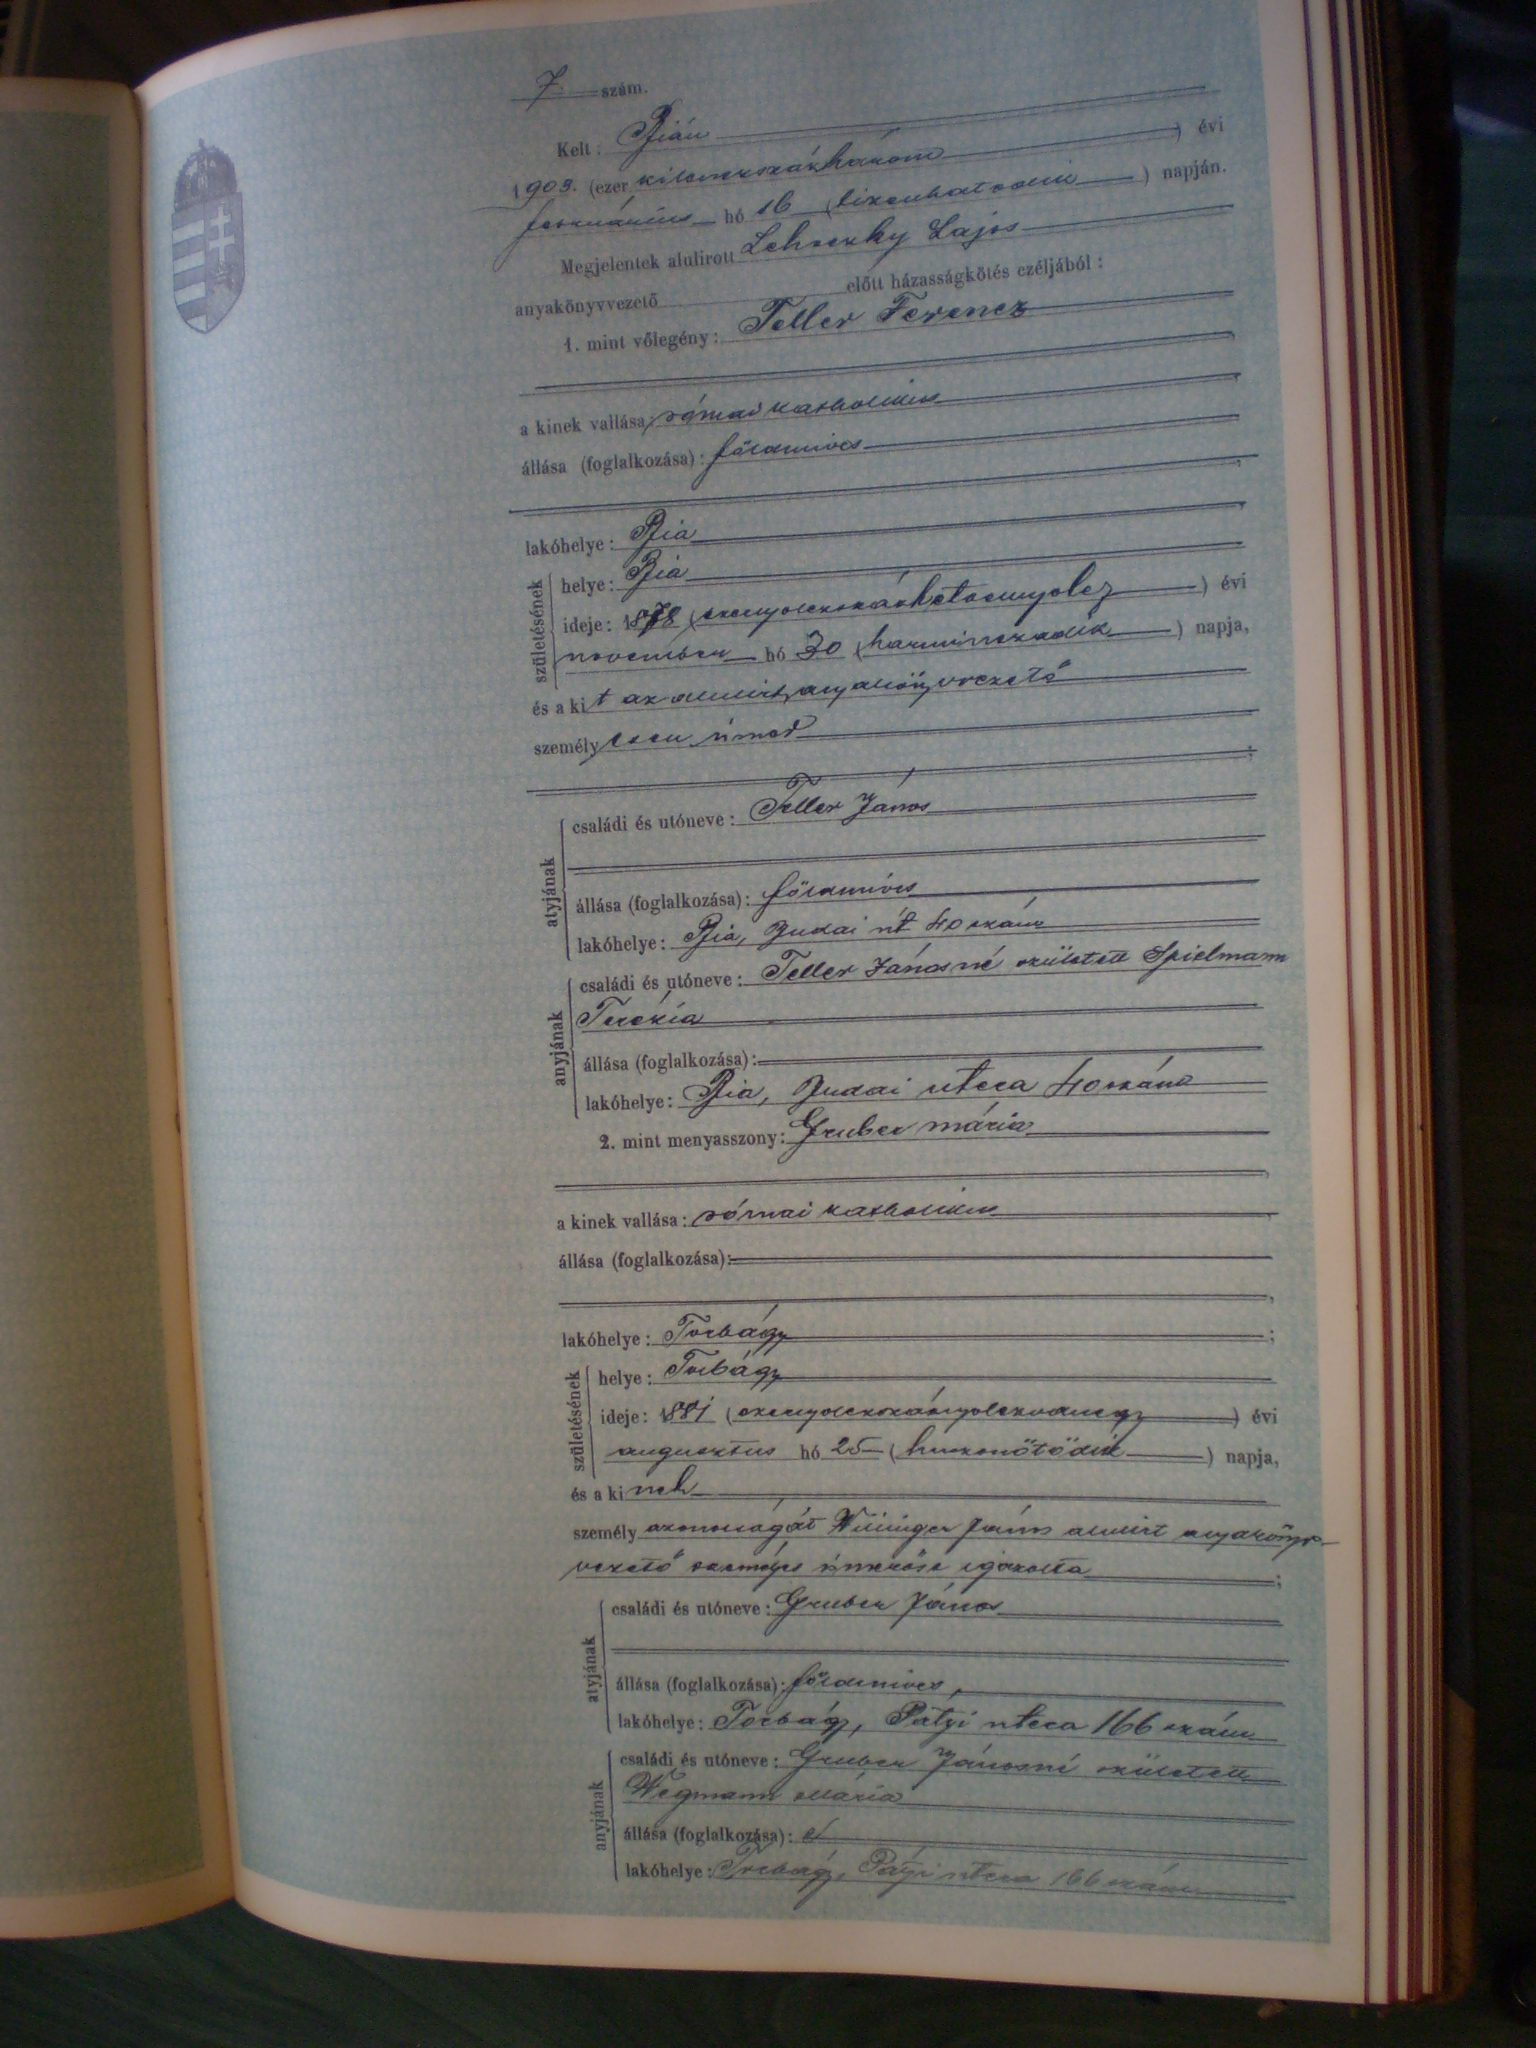 7 szám.
Kelt: Bián
1903. (ezer kilenczszázhárom ) évi
február hó 16 (tizenhatodik ) napján.
Megjelentek alulirott Lehoczky Lajos
anyakönyvvezető előtt házasságkötés czéljából:
1. mint vőlegény: Teller Ferencz
a kinek vallása: római katholikus
állása (foglalkozása): földmíves
lakóhelye: Bia
születésének
helye: Bia
ideje: 1878 (ezernyolczszázhetvennyolcz ) évi
november hó 30 (harminczadik ) napja,
és a kit az alulirt anyakönyvvezető
személyesen ismer
atyjának
családi és utóneve: Teller János
állása (foglalkozása): földmíves
lakóhelye: Bia, Budai út 40 szám
anyjának
családi és utóneve: Teller Jánosné született Spielmann
Terézia
állása (foglalkozása):
lakóhelye: Bia, Budai utcca 40 szám
2. mint menyasszony: Gruber mária
a kinek vallása: római katholikus
állása (foglalkozása):
lakóhelye: Torbágy ;
születésének
helye: Torbágy
ideje: 1881 (ezernyolczszáznyolczvanegy ) évi
augusztus hó 25 (huszonötödik ) napja,
és a kinek
személyazonosságát János alulirt anyakönyv-
vezető személyes ismerőse igazolta ;
atyjának
családi és utóneve: Gruber János
állása (foglalkozása): földmíves,
lakóhelye: Torbágy, Pátyi utcca 166 szám
anyjának
családi és utóneve: Gruber Jánosné született
Wegmann Mária
állása (foglalkozása):
lakóhelye: Torbágy, Pátyi utcca 166 szám